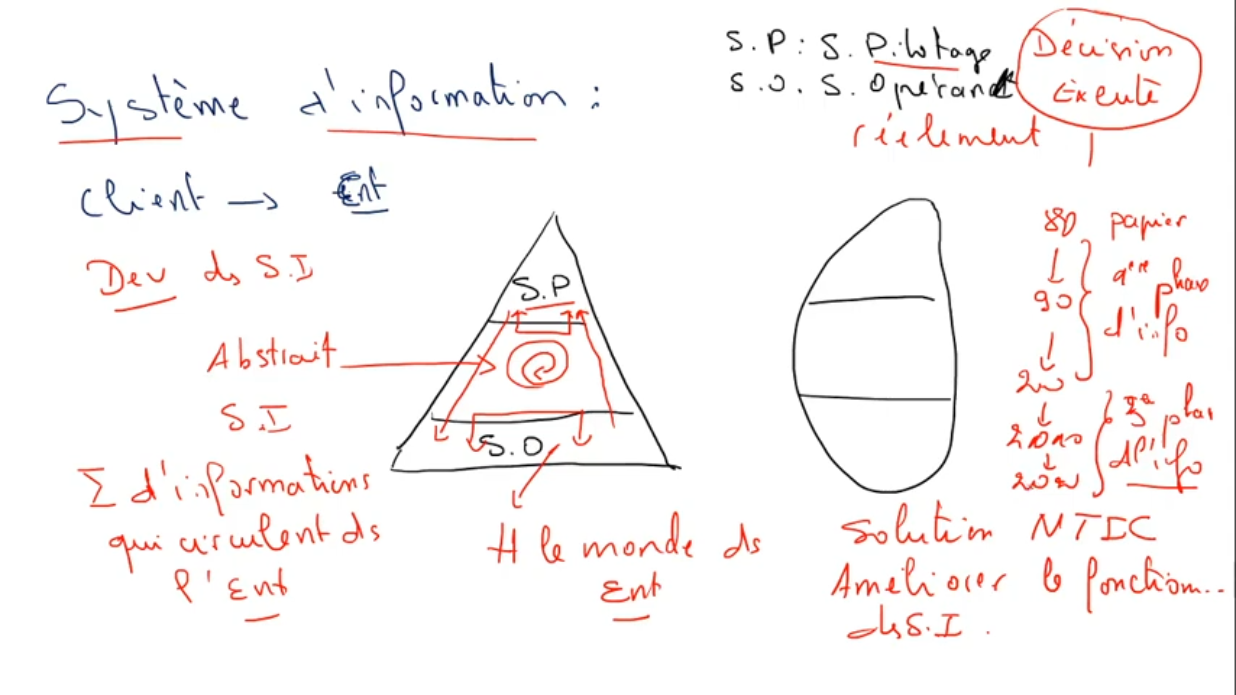 Système d'information :
S.P : S. Pilotage
S.O. S. Opérant
Décision
Exécuté
réelement
Client → Ent
Dev ds S.I
Abstrait
S.I
Σ d'informations
qui circulent ds
l'Ent
S.P
S.O
H le monde ds
Ent
80 papier
90
phase
d'info
2010
2020
phase
d'info
Solution NTIC
Améliorer le fonction...
ds S.I.